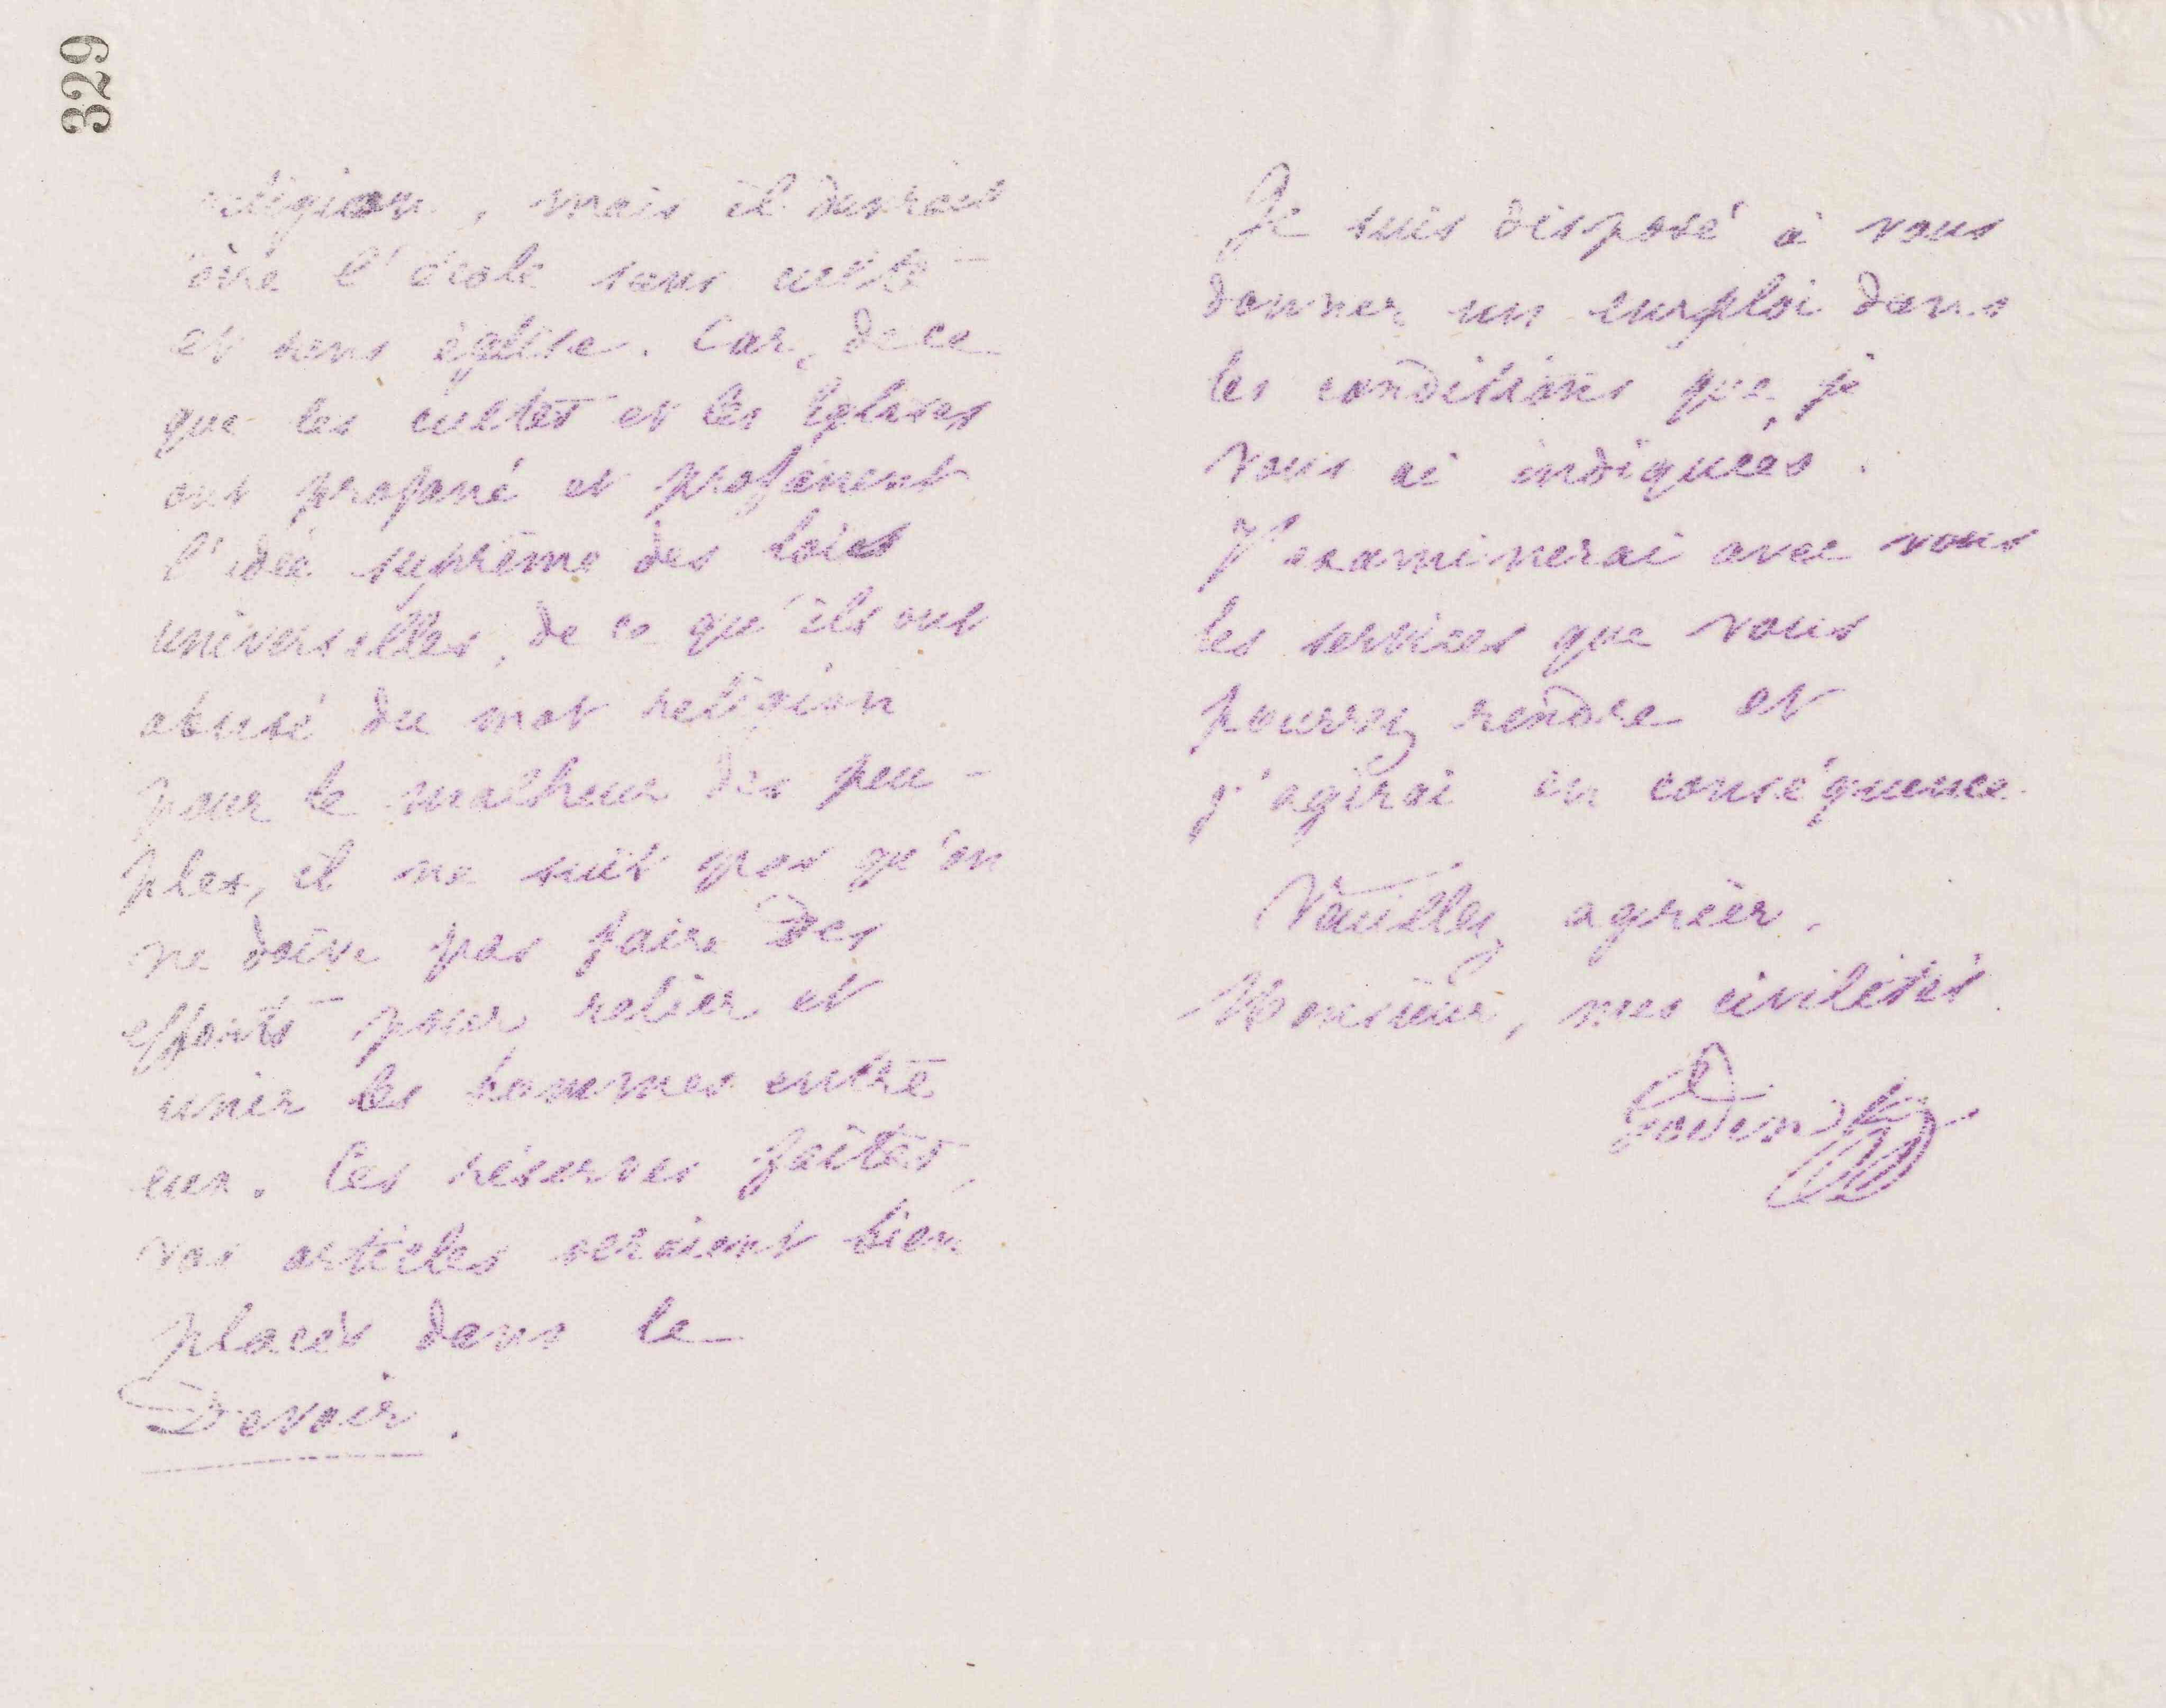 329
religion, mais il devrait
être l'école sans culte
et sans église. Car, de ce
que les cultes et les Eglises
ont profané et profanent
l'idée suprême des lois
universelles, de ce qu'ils ont
abusé du mot religion
pour le malheur des peu-
ples, il ne suit pas qu'on
ne doive pas faire des
efforts pour relier et
unir les hommes entre
eux. Ces réserves faites,
vos articles seraient bien
placés dans le
Devoir.
Je suis disposé à vous
donner un emploi dans
les conditions que je
vous ai indiquées.
J'examinerai avec vous
les services que vous
pourrez rendre et
j'agirai en conséquence.
Veuillez agréer,
Monsieur, mes civilités.
Godin